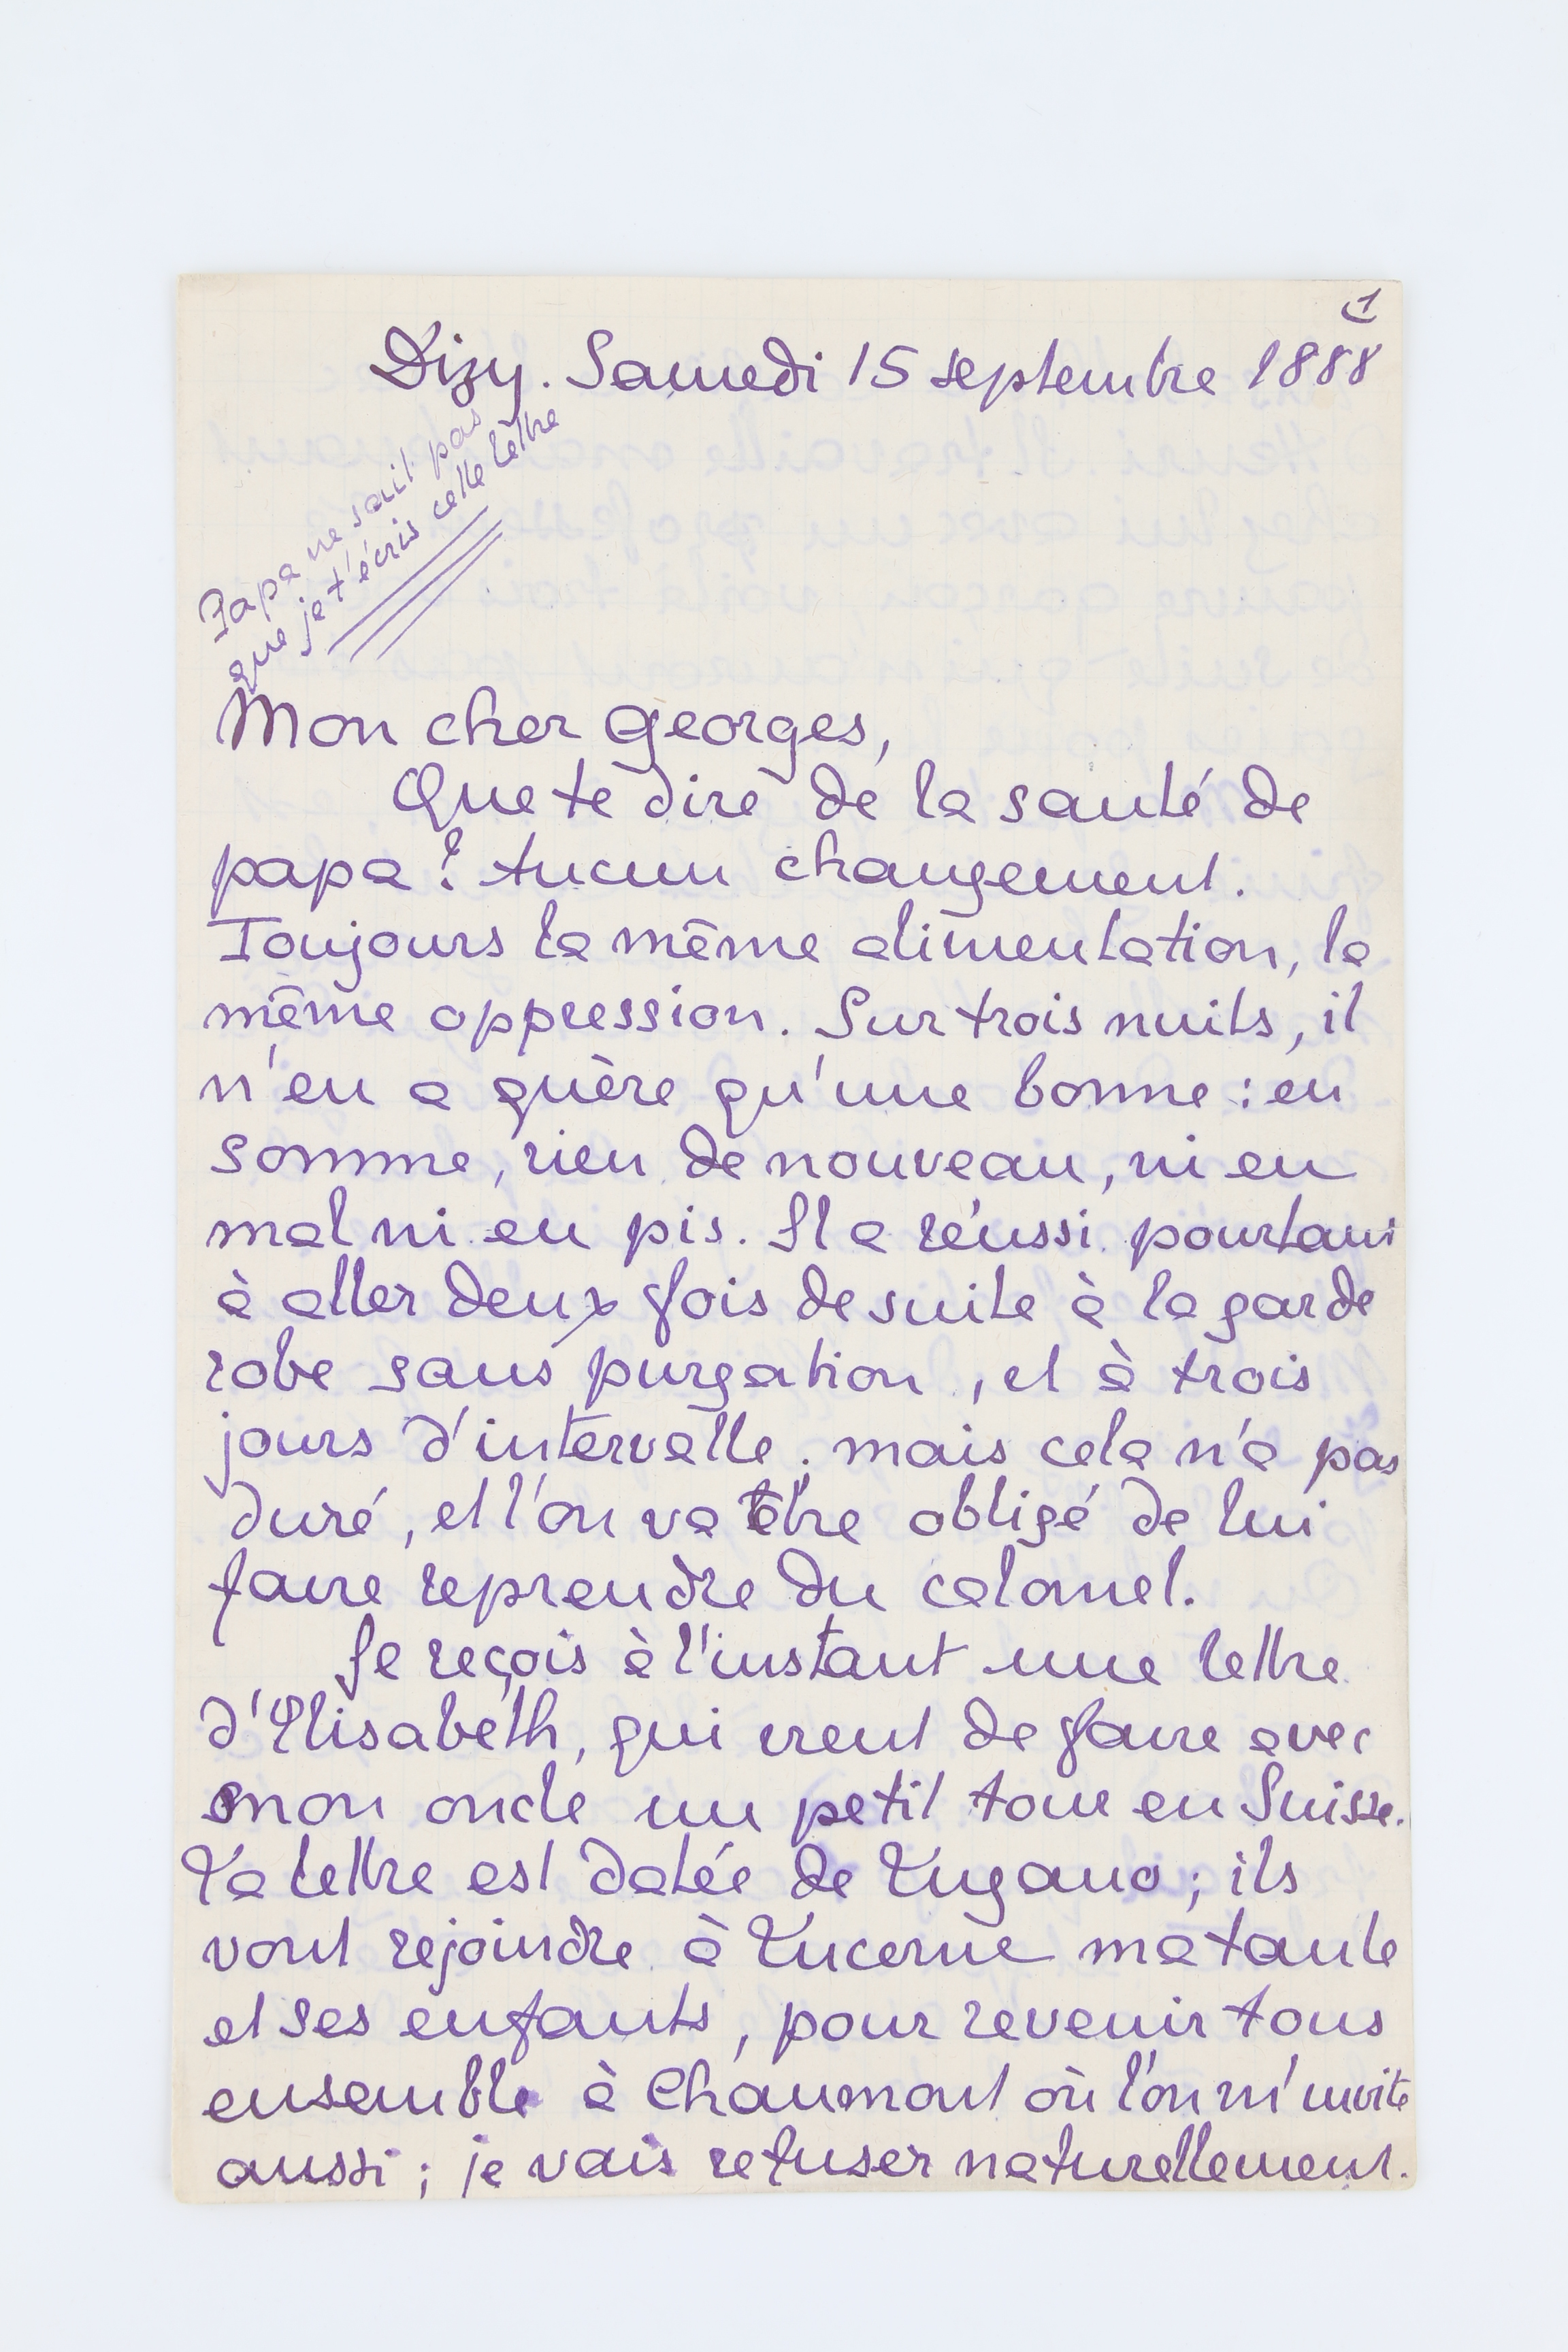 1
Dizy. Samedi 15 septembre 1888
Papa ne sait pas
que je t'écris cette lettre
Mon cher Georges,
Que te dire de la santé de
papa? Aucun changement.
Toujours la même alimentation, la
même oppression. Sur trois nuits, il
n'en a guère qu'une bonne : en
somme, rien de nouveau, ni en
mal ni en pis. Il a réussi pourtant
à aller deux fois de suite à la garde
robe sans purgation, et à trois
jours d'intervalle ; mais cela n'a pas
duré, et l'on va être obligé de lui
faire reprendre du calomel.
Je reçois à l'instant une lettre
d'Elisabeth, qui vient de faire avec
mon oncle un petit tour en Suisse.
La lettre est datée de Lugano ; ils
vont rejoindre à Lucerne ma tante
et ses enfants, pour revenir tous
ensemble à Chaumont où l'on m'invite
aussi ; je vais refuser naturellement.